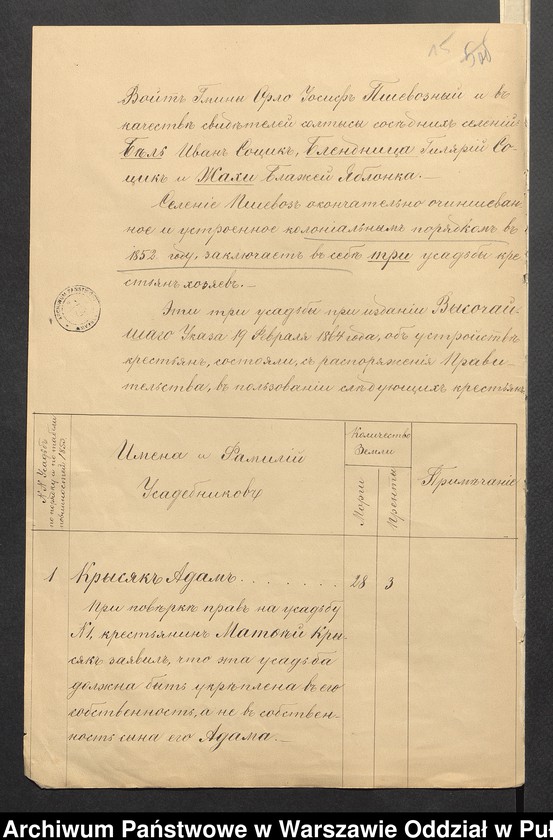 15
Войтъ Гмины Орло Іосифъ Пшевозный и въ
качествѣ свидѣтелей солтысы сосѣднихъ селеній:
Бѣль Иванъ Социкъ, Блендница Гилярій Со-
цикъ и Жахи Блажей Яблонка.—
Селеніе Пшевозъ окончательно очиншеван-
ное и устроенное колоніальнымъ порядкомъ въ
1852 году, заключаетъ въ себѣ три усадьбы кре-
стьянъ хозяевъ.—
Эти три усадьбы при изданіи Высочай-
шаго Указа 19 Февраля 1864 года, объ устройствѣ
крестьянъ, состояли, съ распоряженія Прави-
тельства, въ пользованіи слѣдующихъ крестьянъ
№№ Усадьбъ
по порядку и по табели
повинностей 1850
Имена и Фамилій
Усадебниковъ
Количество
Земли
Морги
Пренты
Примѣчаніе
1 Крысякъ Адамъ........ 28 3
При повѣркѣ правъ на усадьбу
№1, крестьянинъ Матвѣй Кры-
сякъ заявилъ, что эта усадьба
должна быть укрѣплена въ его
собственность, а не въ собствен-
ность сына его Адама.—
Archiwum Państwowe w Warszawie Oddział w Puł